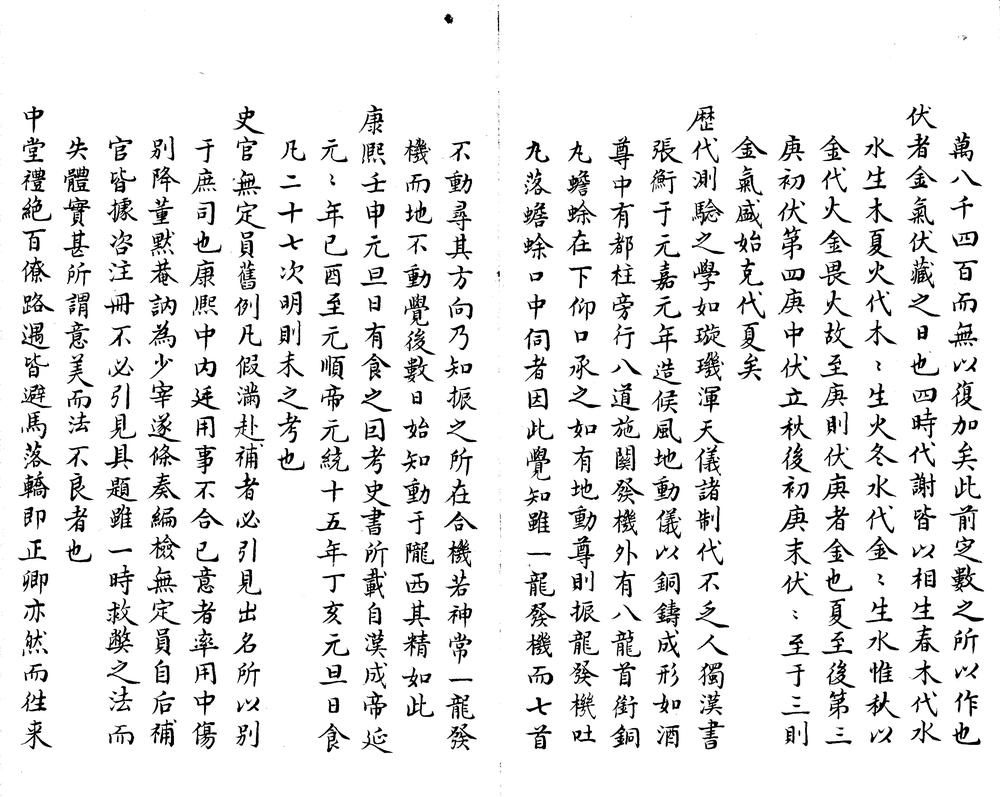 萬八千四百而無以復加矣此前定數之所以作也
伏者金氣伏藏之日也四時代謝皆以相生春木代水
水生木夏火代木〻生火冬水代金〻生水惟秋以
金代火金畏火故至庚則伏庚者金也夏至後第三
庚初伏第四庚中伏立秋後初庚末伏〻至于三則
金氣盛始克代夏矣
歴代測驗之學如璇璣渾天儀諸制代不乏人獨漢書
張衡于元嘉元年造候風地動儀以銅鑄成形如酒
尊中有都柱旁行八道施関發機外有八龍首銜銅
丸蟾蜍在下仰口承之如有地動尊則振龍發機吐
丸落蟾蜍口中伺者因此覺知雖一龍發機而七首
不動尋其方向乃知振之所在合機若神常一龍發
機而地不動覺後數日始知動于隴西其精如此
康熙壬申元旦日有食之因考史書所載自漢成帝延
元〻年已酉至元順帝元統十五年丁亥元旦日食
凡二十七次明則未之考也
史官無定員舊例凡假滿赴補者必引見出名所以别
于庶司也康熙中内廷用事不合已意者率用中傷
别降董默菴訥為少宰遂條奏編檢無定員自后補
官皆據咨注冊不必引見具題雖一時救獘之法而
失體實甚所謂意美而法不良者也
中堂禮絶百僚路遇皆避馬落轎即正卿亦然而徃来